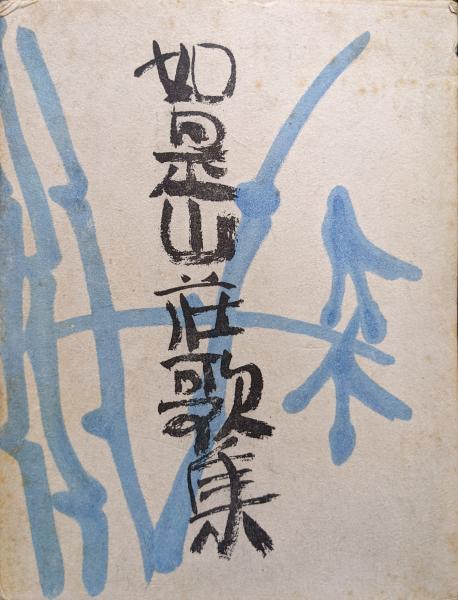 如是山荘歌集